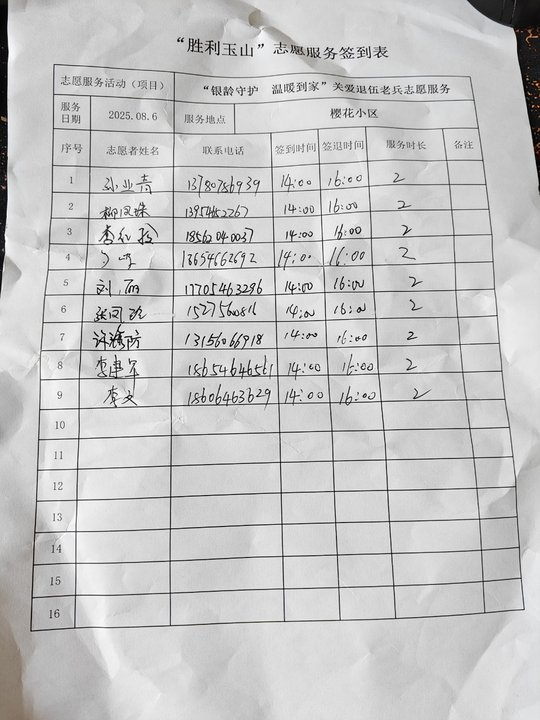 “胜利玉山”志愿服务签到表
志愿服务活动（项目） “银龄守护 温暖到家”关爱退伍老兵志愿服务
服务日期 2025.08.6 服务地点 樱花小区
序号 志愿者姓名 联系电话 签到时间 签退时间 服务时长 备注
1 孙业青 14:00 16:00 2
2 柳凤珠 14:00 16:00 2
3 18562040037 14:00 16:00 2
4 13654662692 14:00 16:00 2
5 刘丽 17705463296 14:00 16:00 2
6 14:00 16:00 2
7 13156066918 14:00 16:00 2
8 李建军 18654646561 14:00 16:00 2
9 李文 18606463629 14:00 16:00 2
10
11
12
13
14
15
16